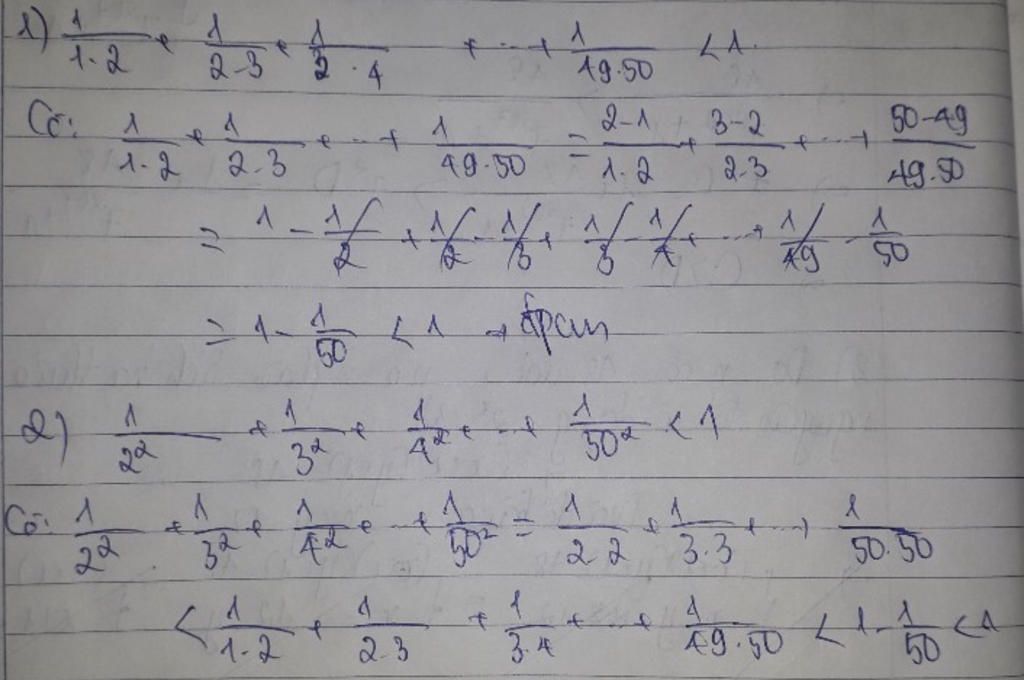 1) 1/1·2 + 1/2·3 + 1/3·4 + ... + 1/49·50 < 1.
Có: 1/1·2 + 1/2·3 + ... + 1/49·50 = 2-1/1·2 + 3-2/2·3 + ... + 50-49/49·50
= 1 - 1/2 + 1/2 - 1/3 + 1/3 - 1/4 + ... + 1/49 - 1/50
= 1 - 1/50 < 1 → đpcm
2) 1/2² + 1/3² + 1/4² + ... + 1/50² < 1
Có: 1/2² + 1/3² + 1/4² + ... + 1/50² = 1/2·2 + 1/3·3 + ... + 1/50·50
< 1/1·2 + 1/2·3 + 1/3·4 + ... + 1/49·50 < 1 - 1/50 < 1